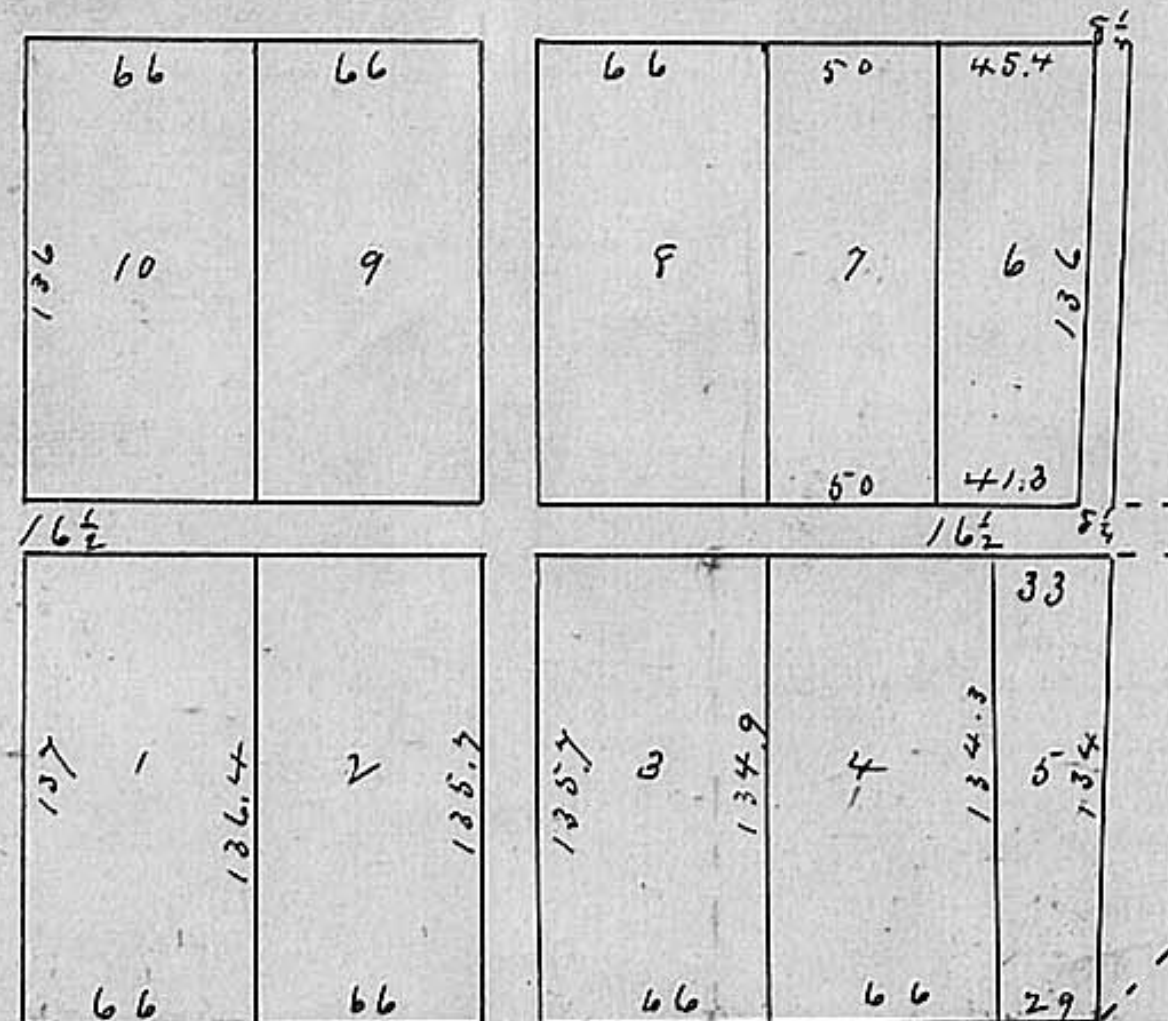 8 1/4
66 66 66 50 45.4
136 10 9 8 7 6 136
50 41.3
16 1/2 16 1/2 8 1/4
33
137 1 136.4 2 135.7 135.7 3 134.9 4 134.3 5 134
66 66 66 66 29